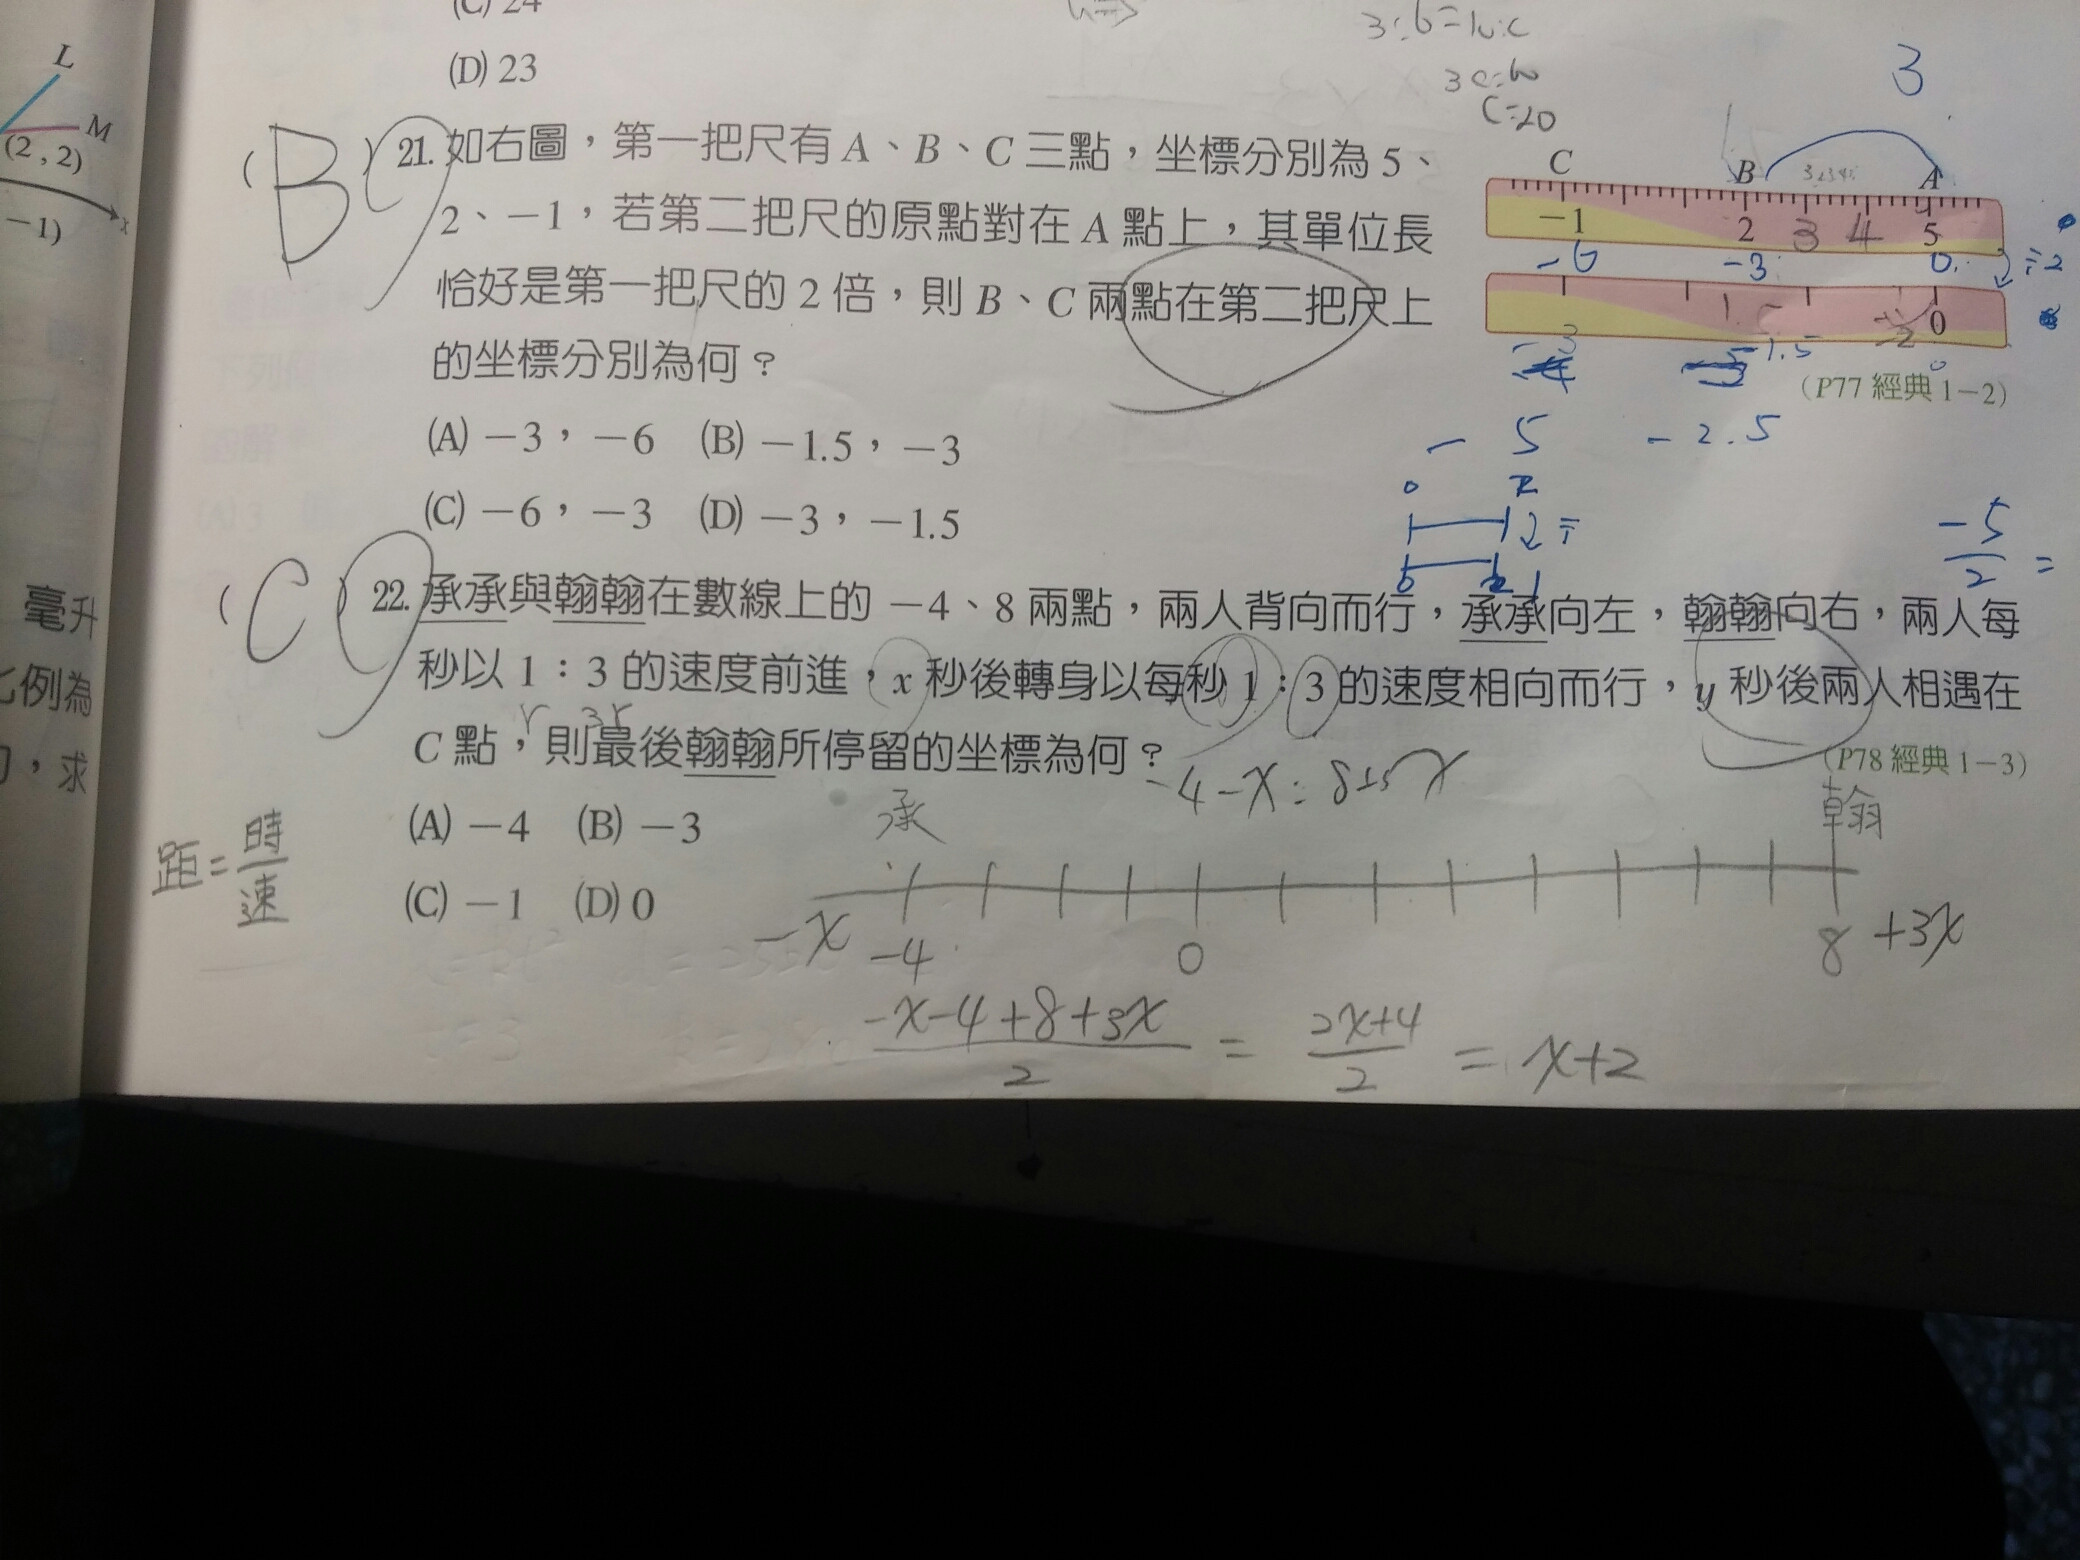 (C) 24
(D) 23
3:6=10:c
3c=60
C=20
3
L
M
(2,2)
x
-1)
(B) 21. 如右圖，第一把尺有 A、B、C 三點，坐標分別為 5、
2、-1，若第二把尺的原點對在 A 點上，其單位長
恰好是第一把尺的 2 倍，則 B、C 兩點在第二把尺上
的坐標分別為何？
(A) -3，-6 (B) -1.5，-3
(C) -6，-3 (D) -3，-1.5
C B A
-1 2 3 4 5
-6 -3 0 ÷2
0
-1.5
0
(P77 經典 1-2)
-5 -2.5
-5/2 =
(C) 22. 承承與翰翰在數線上的 -4、8 兩點，兩人背向而行，承承向左，翰翰向右，兩人每
秒以 1：3 的速度前進，x 秒後轉身以每秒 1：3 的速度相向而行，y 秒後兩人相遇在
r 3r
C 點，則最後翰翰所停留的坐標為何？
(P78 經典 1-3)
(A) -4 (B) -3
(C) -1 (D) 0
毫升
比例為
，求
距=時/速
承 翰
-x -4 0 8 +3x
(-x-4+8+3x)/2 = (2x+4)/2 = x+2